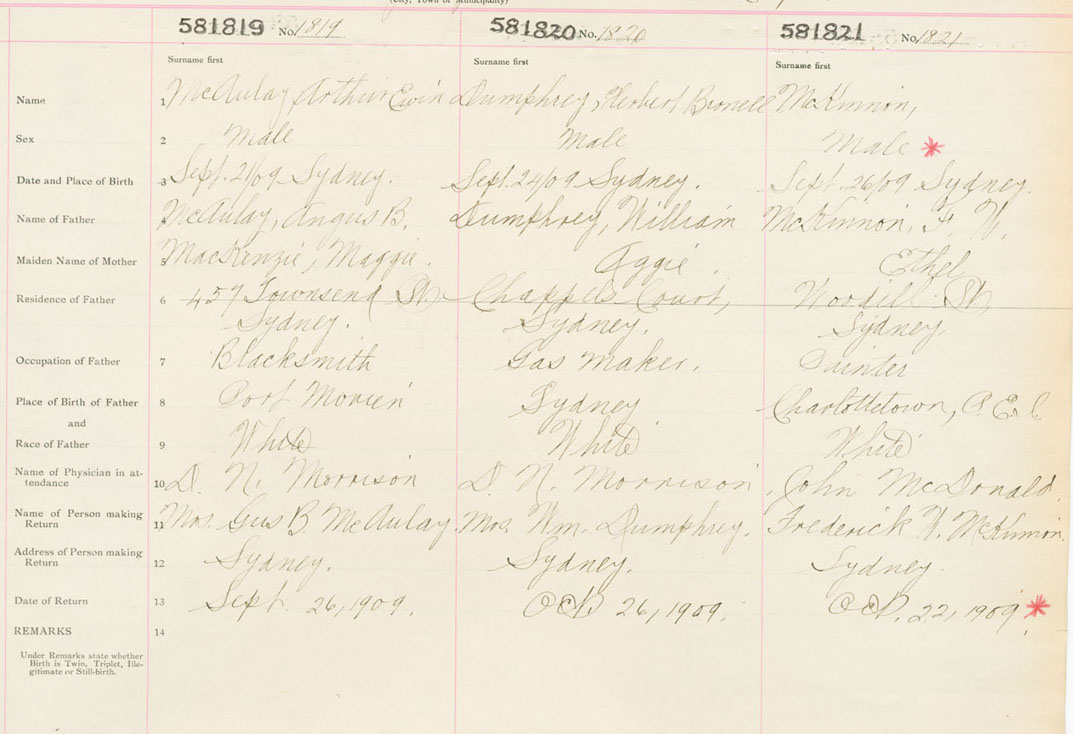 (City, Town or Municipality)
581819 No. 1819 581820 No. 1820 581821 No. 1821
Surname first Surname first Surname first
Name 1 McAulay, Arthur Ewin Dumphrey, Herbert Bronell McKinnon,
Sex 2 Male Male Male *
Date and Place of Birth 3 Sept. 21/09 Sydney. Sept. 24/09 Sydney. Sept. 26/09 Sydney.
Name of Father 4 McAulay, Angus B. Dumphrey, William McKinnon, F. W.
Maiden Name of Mother 5 MacKenzie, Maggie. Aggie. Ethel
Residence of Father 6 457 Townsend St. Chappels Court, St
Sydney. Sydney. Sydney,
Occupation of Father 7 Blacksmith Gas Maker. Painter
Place of Birth of Father 8 Port Morien Sydney Charlottetown, P. E. I.
and
Race of Father 9 White White White
Name of Physician in at-
tendance 10 D. N. Morrison D. N. Morrison, John McDonald.
Name of Person making
Return 11 Mrs. Gus B. McAulay. Mrs. Wm. Dumphrey. Frederick W. McKinnon.
Address of Person making
Return 12 Sydney. Sydney. Sydney.
Date of Return 13 Sept. 26, 1909. Oct. 26, 1909. Oct. 22, 1909 *
REMARKS 14
Under Remarks state whether
Birth is Twin, Triplet, Ille-
gitimate or Still-birth.